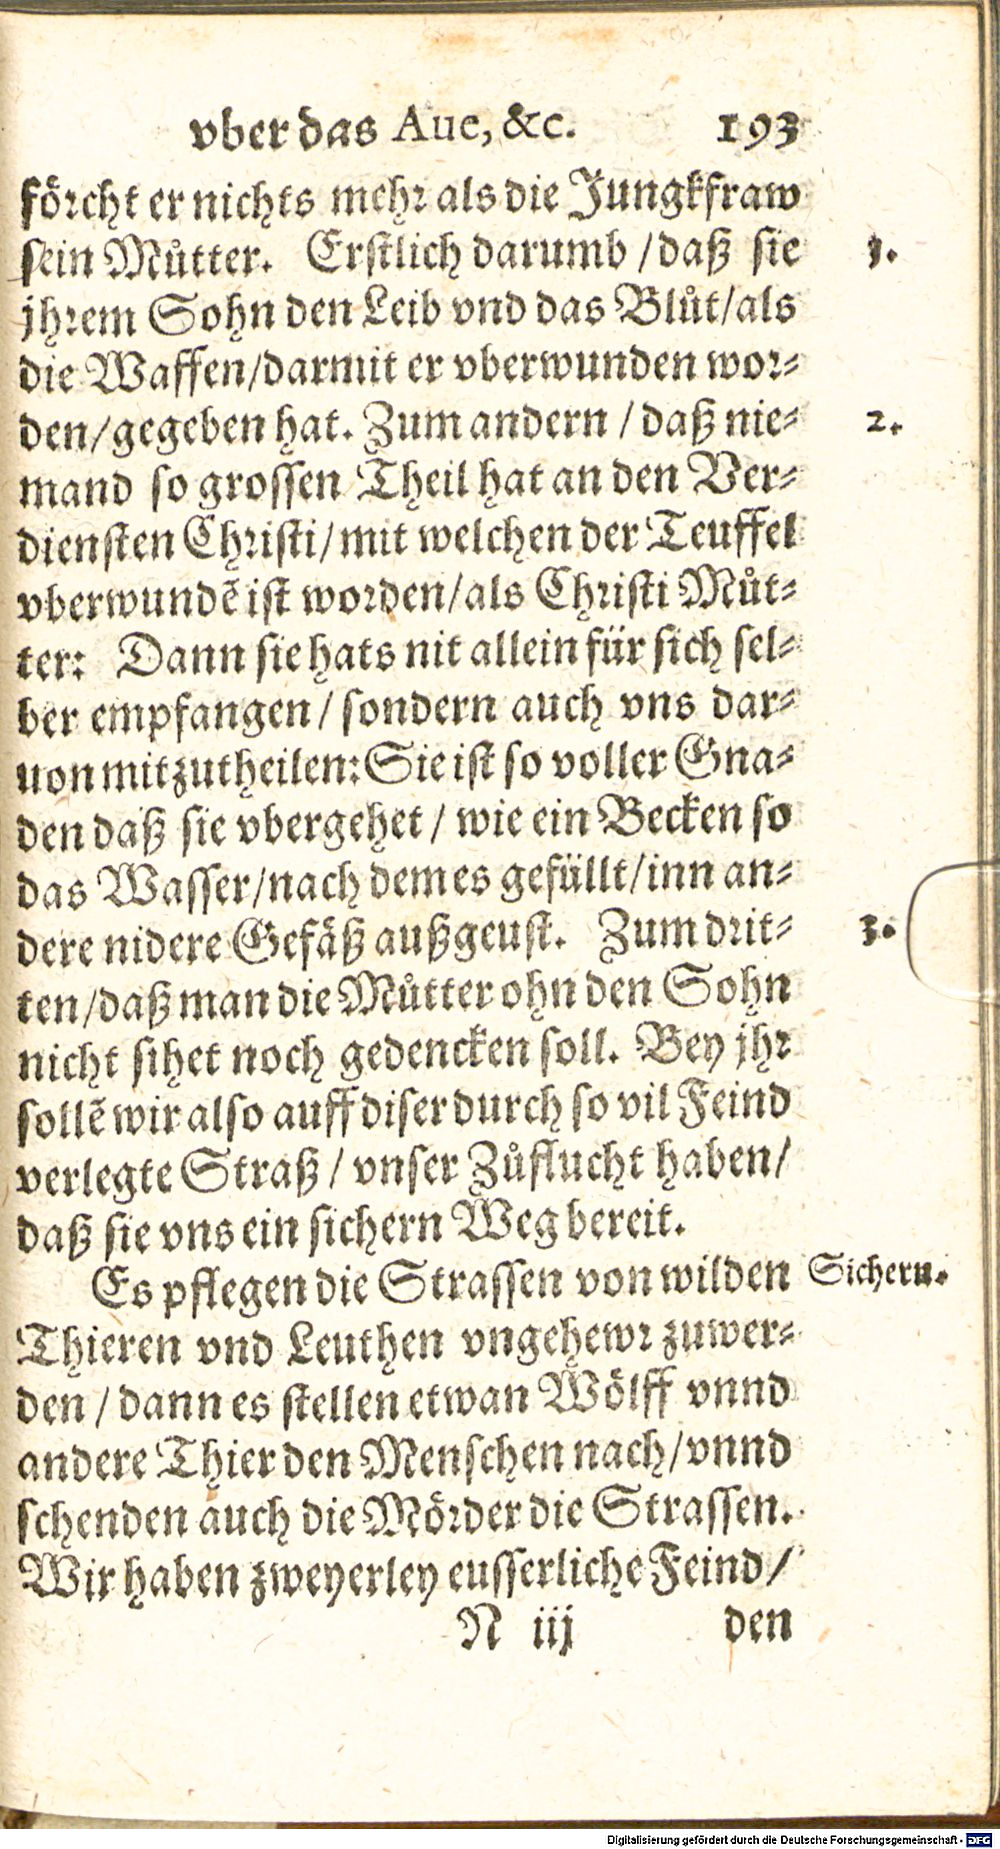 vber das Aue, &c. 193
förcht er nichts mehr als die Jungkfraw
sein Můtter. Erstlich darumb / daß sie 1.
jhrem Sohn den Leib vnd das Blůt/als
die Waffen/darmit er vberwunden wor-
den/gegeben hat. Zum andern / daß nie- 2.
mand so grossen Theil hat an den Ver-
diensten Christi/mit welchen der Teuffel
vberwundẽ ist worden/als Christi Můt-
ter: Dann sie hats nit allein für sich sel-
ber empfangen / sondern auch vns dar-
uon mitzutheilen: Sie ist so voller Gna-
den daß sie vbergehet / wie ein Becken so
das Wasser/nach dem es gefüllt/inn an-
dere nidere Gefäß außgeust. Zum drit- 3.
ten/daß man die Můtter ohn den Sohn
nicht sihet noch gedencken soll. Bey jhr
sollẽ wir also auff diser durch so vil Feind
verlegte Straß / vnser Zůflucht haben/
daß sie vns ein sichern Weg bereit.
Es pflegen die Strassen von wilden Sichern.
Thieren vnd Leuthen vngehewr zuwer-
den / dann es stellen etwan Wölff vnnd
andere Thier den Menschen nach/vnnd
schenden auch die Mörder die Strassen.
Wir haben zweyerley eusserliche Feind/
N iij den
Digitalisierung gefördert durch die Deutsche Forschungsgemeinschaft - DFG